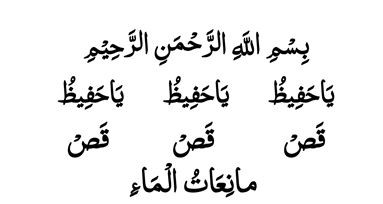 بِسْمِ اللَّهِ الرَّحْمَنِ الرَّحِيْمِ
يَاحَفِيظُ يَاحَفِيظُ يَاحَفِيظُ
قَصْ قَصْ قَصْ
مانِعَاتُ الْمَاءِ